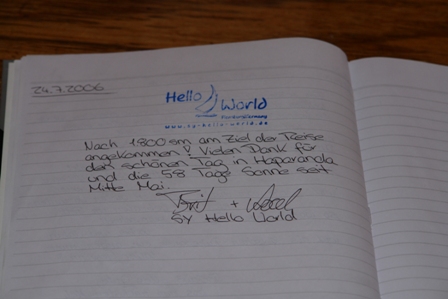 24.7.2006
Hello World
www.sy-hello-world.de
Nach 1800 sm am Ziel der Reise
angekommen! Vielen Dank für
den schönen Tag in Haparanda
und die 58 Tage Sonne seit
Mitte Mai.
+
SY Hello World